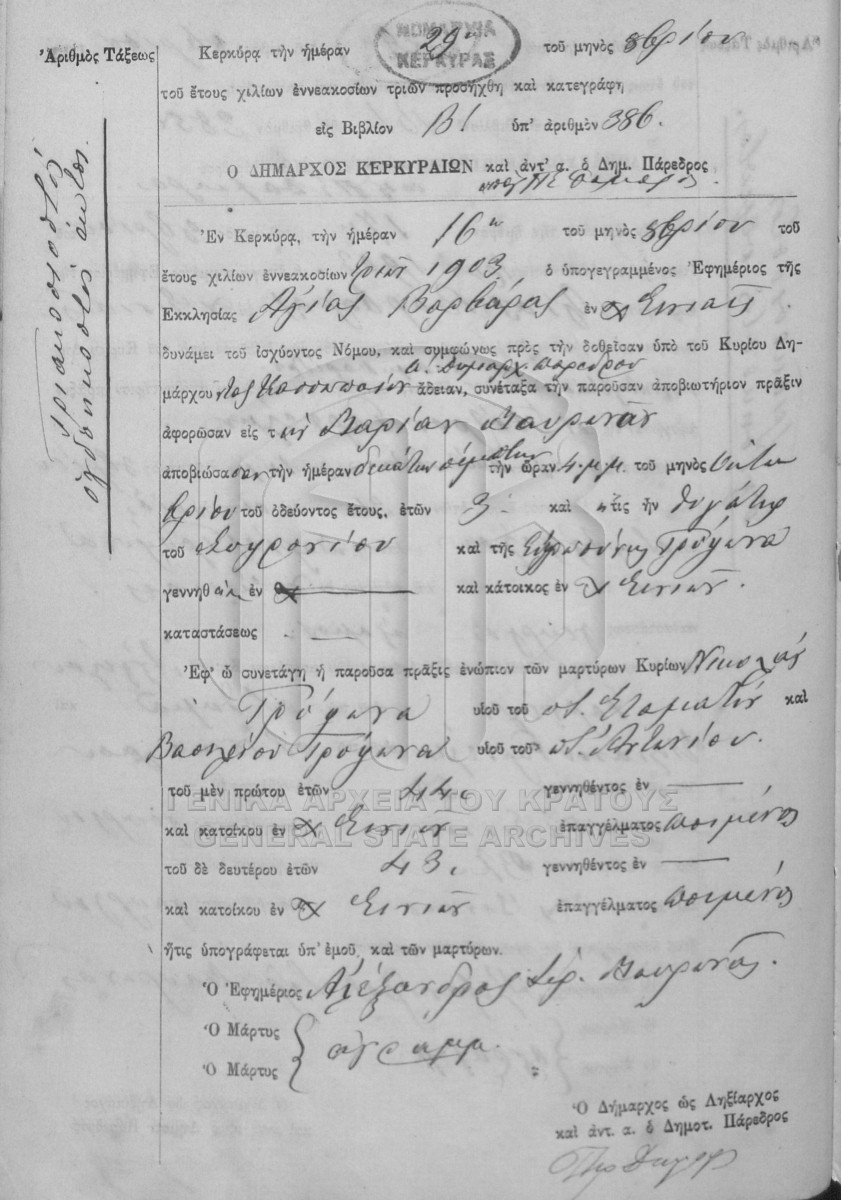 ΝΟΜΑΡΧΙΑ
ΚΕΡΚΥΡΑΣ
Ἀριθμὸς Τάξεως
τριακοσιοστὸς
ὀγδοηκοστὸς ἕκτος
Κερκύρᾳ τὴν ἡμέραν 29ην τοῦ μηνὸς 8βρίου
τοῦ ἔτους χιλίων ἐννεακοσίων τριῶν προσήχθη καὶ κατεγράφη
εἰς Βιβλίον Β! ὑπ' ἀριθμὸν 386.
Ο ΔΗΜΑΡΧΟΣ ΚΕΡΚΥΡΑΙΩΝ καὶ ἀντ' α. ὁ Δημ. Πάρεδρος
Ἐν Κερκύρᾳ, τὴν ἡμέραν 16ην τοῦ μηνὸς 8βρίου τοῦ
ἔτους χιλίων ἐννεακοσίων τριῶν 1903 ὁ ὑπογεγραμμένος Ἐφημέριος τῆς
Εκκλησίας Ἁγίας Βαρβάρας ἐν χ Σινιαῖς
δυνάμει τοῦ ἰσχύοντος Νόμου, καὶ συμφώνως πρὸς τὴν δοθεῖσαν ὑπὸ τοῦ Κυρίου Δη-
α. Δημαρχ. Παρέδρου
μάρχου τῆς Κασσωπαίων ἄδειαν, συνέταξα τὴν παροῦσαν ἀποβιωτήριον πρᾶξιν
ἀφορῶσαν εἰς τὴν Μαρίαν Μαυρωνᾶ
ἀποβιώσασαν τὴν ἡμέραν δεκάτην πέμπτην τὴν ὥραν 4 μ.μ. τοῦ μηνὸς Ὀκτω
βρίου τοῦ ὁδεύοντος ἔτους, ἐτῶν 3 καὶ ἥτις ἦν θυγάτηρ
τοῦ Σπυρονίου καὶ τῆς Εὐφροσύνης Τρύφωνα
γεννηθ ἐν χ καὶ κάτοικος ἐν χ Σινιῶν.
καταστάσεως -
Ἐφ' ᾧ συνετάγη ἡ παροῦσα πρᾶξις ἐνώπιον τῶν μαρτύρων Κυρίων Νικολάου
Τρύφωνα υἱοῦ τοῦ ποτ. Σταματίου καὶ
Βασιλείου Τρύφωνα υἱοῦ τοῦ ποτ. Ἀντωνίου.
τοῦ μὲν πρώτου ἐτῶν 44. γεννηθέντος ἐν
ΓΕΝΙΚΑ ΑΡΧΕΙΑ ΤΟΥ ΚΡΑΤΟΥΣ
καὶ κατοίκου ἐν χ Σινιῶν ἐπαγγέλματος ποιμένος
GENERAL STATE ARCHIVES
τοῦ δὲ δευτέρου ἐτῶν 43. γεννηθέντος ἐν
καὶ κατοίκου ἐν χ Σινιῶν ἐπαγγέλματος ποιμένος
ἥτις ὑπογράφεται ὑπ' ἐμοῦ καὶ τῶν μαρτύρων.
Ὁ Ἐφημέριος Ἀλέξανδρος Μαυρωνᾶς.
Ὁ Μάρτυς
ἀγράμμ.
Ὁ Μάρτυς
Ὁ Δήμαρχος ὡς Ληξίαρχος
καὶ ἀντ. α. ὁ Δημοτ. Πάρεδρος